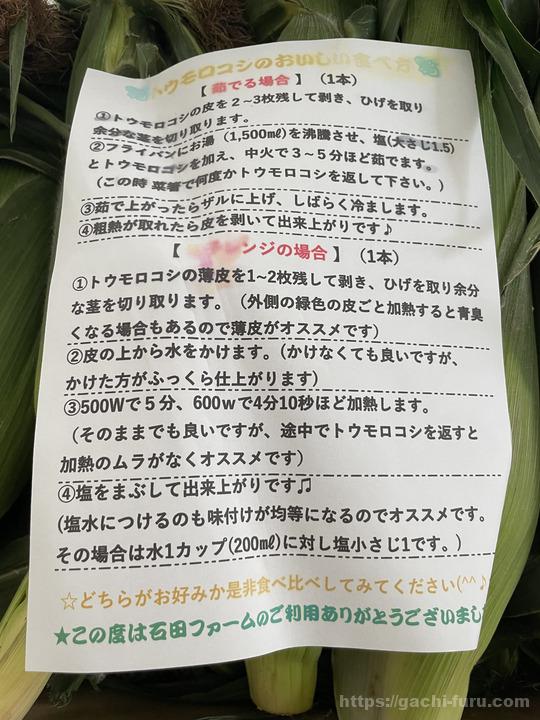 トウモロコシのおいしい食べ方
【 茹でる場合 】 （1本）
①トウモロコシの皮を２~3枚残して剥き、ひげを取り
余分な茎を切り取ります。
②フライパンにお湯（1,500㎖)を沸騰させ、塩(大さじ1.5)
とトウモロコシを加え、中火で３～５分ほど茹でます。
（この時 菜箸で何度かトウモロコシを返して下さい。）
③茹で上がったらザルに上げ、しばらく冷まします。
④粗熱が取れたら皮を剥いて出来上がりです♪
【 レンジの場合 】 （1本）
①トウモロコシの薄皮を1~2枚残して剥き、ひげを取り余分
な茎を切り取ります。（外側の緑色の皮ごと加熱すると青臭
くなる場合もあるので薄皮がオススメです）
②皮の上から水をかけます。（かけなくても良いですが、
かけた方がふっくら仕上がります）
③500Wで５分、600ｗで4分10秒ほど加熱します。
（そのままでも良いですが、途中でトウモロコシを返すと
加熱のムラがなくオススメです）
④塩をまぶして出来上がりです♫
(塩水につけるのも味付けが均等になるのでオススメです。
その場合は水1カップ(200㎖)に対し塩小さじ1です。)
☆どちらがお好みか是非食べ比べしてみてください(^^♪
★この度は石田ファームのご利用ありがとうございまし
https://gachi-furu.com